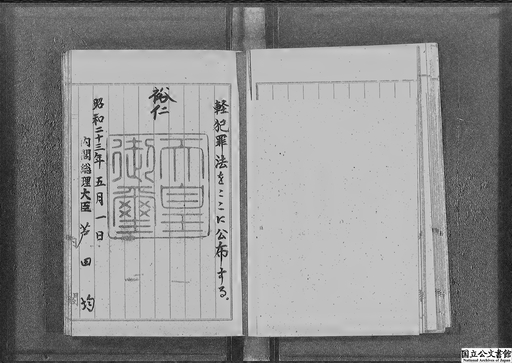 軽犯罪法をここに公布する。
裕仁
天皇御璽
昭和二十三年五月一日
内閣総理大臣 芦田均
国立公文書館
National Archives of Japan